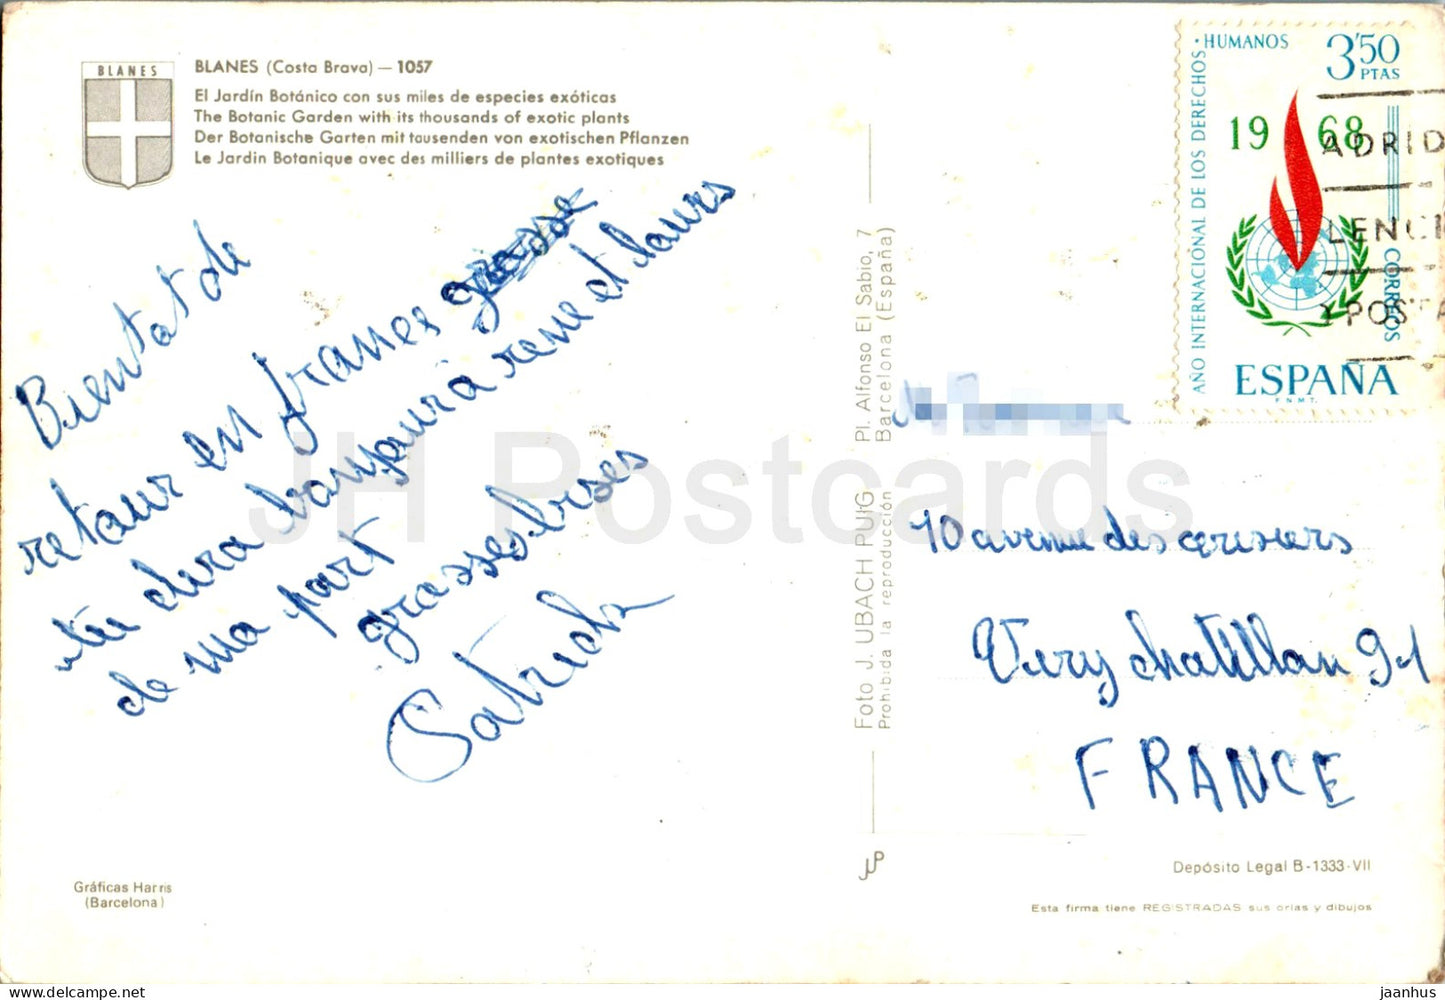 BLANES
BLANES (Costa Brava) — 1057
El Jardín Botánico con sus miles de especies exóticas
The Botanic Garden with its thousands of exotic plants
Der Botanische Garten mit tausenden von exotischen Pflanzen
Le Jardin Botanique avec des milliers de plantes exotiques
retour en france
de ma part
grosses bises
Gráficas Harris
(Barcelona)
Foto J. UBACH PUIG Pl. Alfonso El Sabio, 7
Prohibida la reproducción Barcelona (España)
JH Postcards
AÑO INTERNACIONAL DE LOS DERECHOS
· HUMANOS
3'50
PTAS
1968
CORREOS
ESPAÑA
F.N.M.T.
ADRID
10 avenue des cerisiers
Viry chatillon 91
FRANCE
JUP
Depósito Legal B-1333-VII
Esta firma tiene REGISTRADAS sus orlas y dibujos
jaanhus